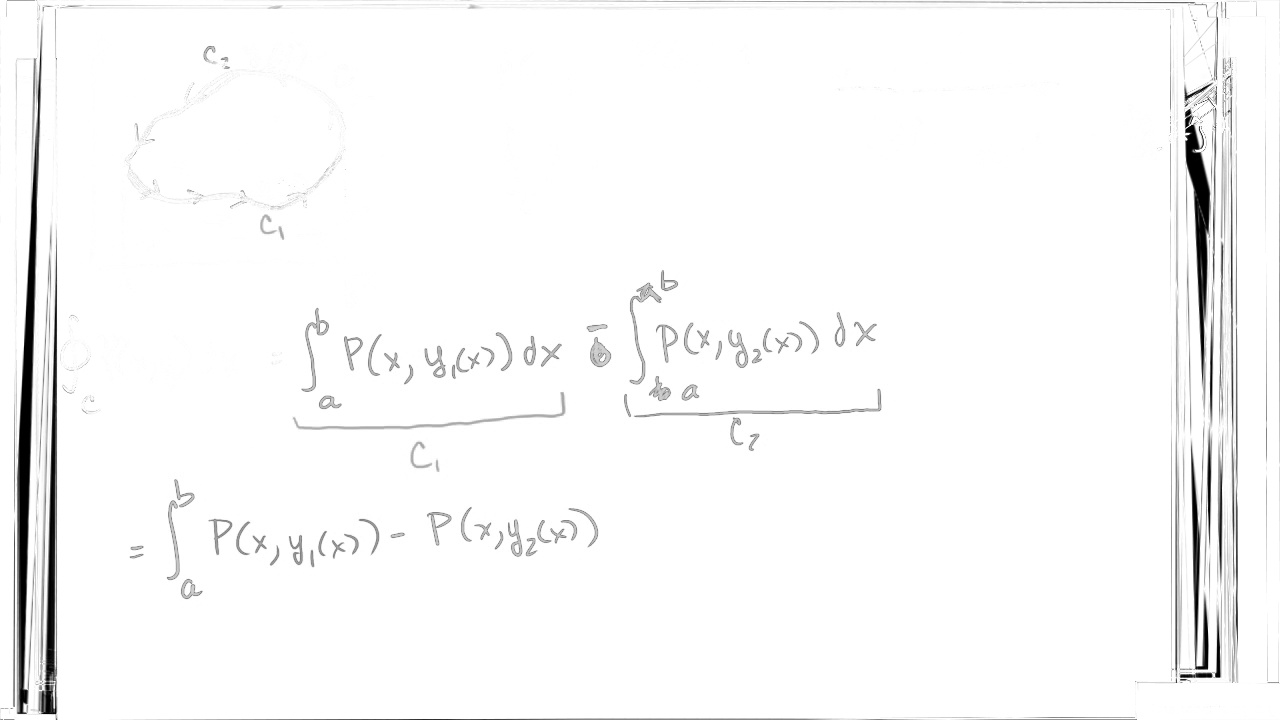 C₂
C₁
∫ₐᵇ P(x, y₁(x)) dx - ∫ₐᵇ P(x, y₂(x)) dx
C₁ C₂
= ∫ₐᵇ P(x, y₁(x)) - P(x, y₂(x))